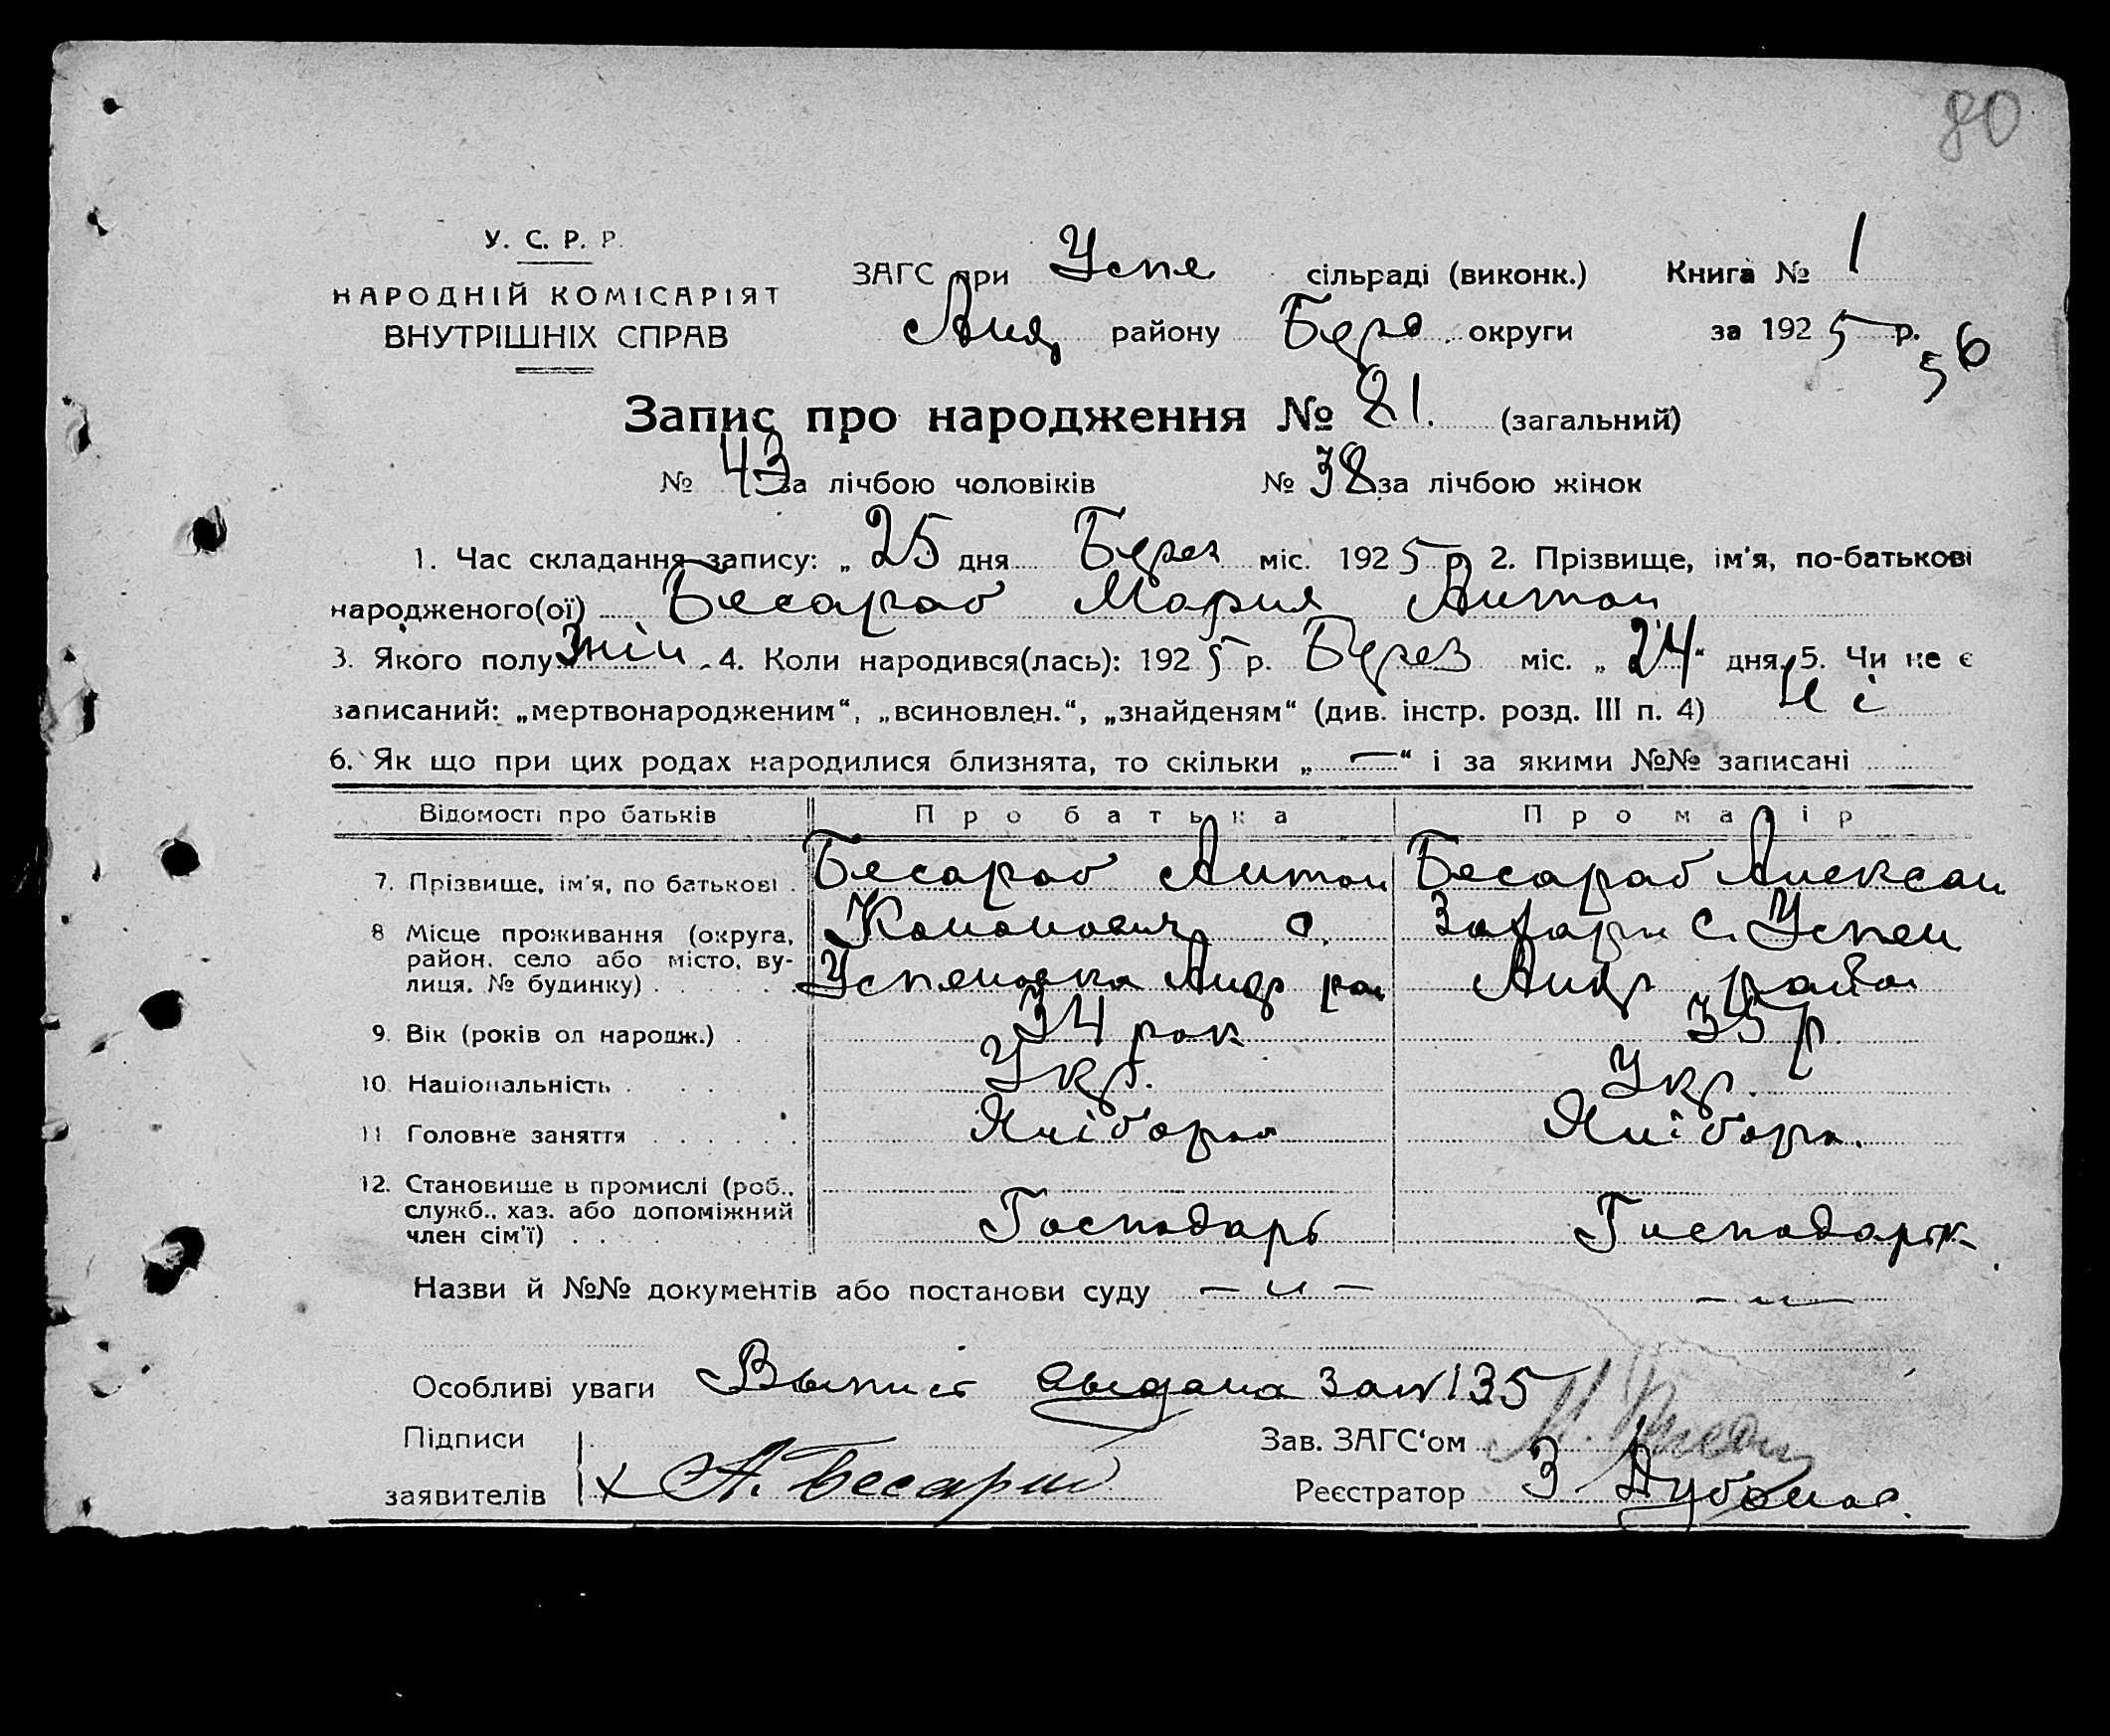 80
У. С. Р. Р.
НАРОДНІЙ КОМІСАРІЯТ
ВНУТРІШНІХ СПРАВ
ЗАГС при Успе сільраді (виконк.) Книга № 1
району округи за 1925 р.
56
Запис про народження № 81. (загальний)
№ 43 за лічбою чоловіків № 38 за лічбою жінок
1. Час складання запису: „ 25 дня Берез міс. 1925 р 2. Прізвище, ім'я, по-батькові
народженого(ої) Бесараб Мария Антон
3. Якого полу жін. 4. Коли народився(лась): 1925 р. Берез міс. „ 24 “ дня. 5. Чи не є
записаний: „мертвонародженим“, „всиновлен.“, „знайденям“ (див. інстр. розд. III п. 4) Ні
6. Як що при цих родах народилися близнята, то скільки „ — “ і за якими №№ записані
Відомості про батьків Про батька Про матір
7. Прізвище, ім'я, по батькові . Бесараб Антон Бесараб Алексан
8 Місце проживання (округа, Кононович с. Захари с. Успен
район, село або місто, ву-
лиця, № будинку) Успеновка Андр рай Андр район
9. Вік (років од народж.) . 34 рок 35 р.
10. Національність Укр. Укр.
11 Головне заняття Хліборол Хлібора.
12. Становище в промислі (роб.,
служб., хаз. або допоміжний
член сім'ї) Господарь Господарьк
Назви й №№ документів або постанови суду — и — — и —
Особливі уваги Выпись выдана за № 135
Підписи
заявителів А. Бесараб
Зав. ЗАГС'ом
Реєстратор З